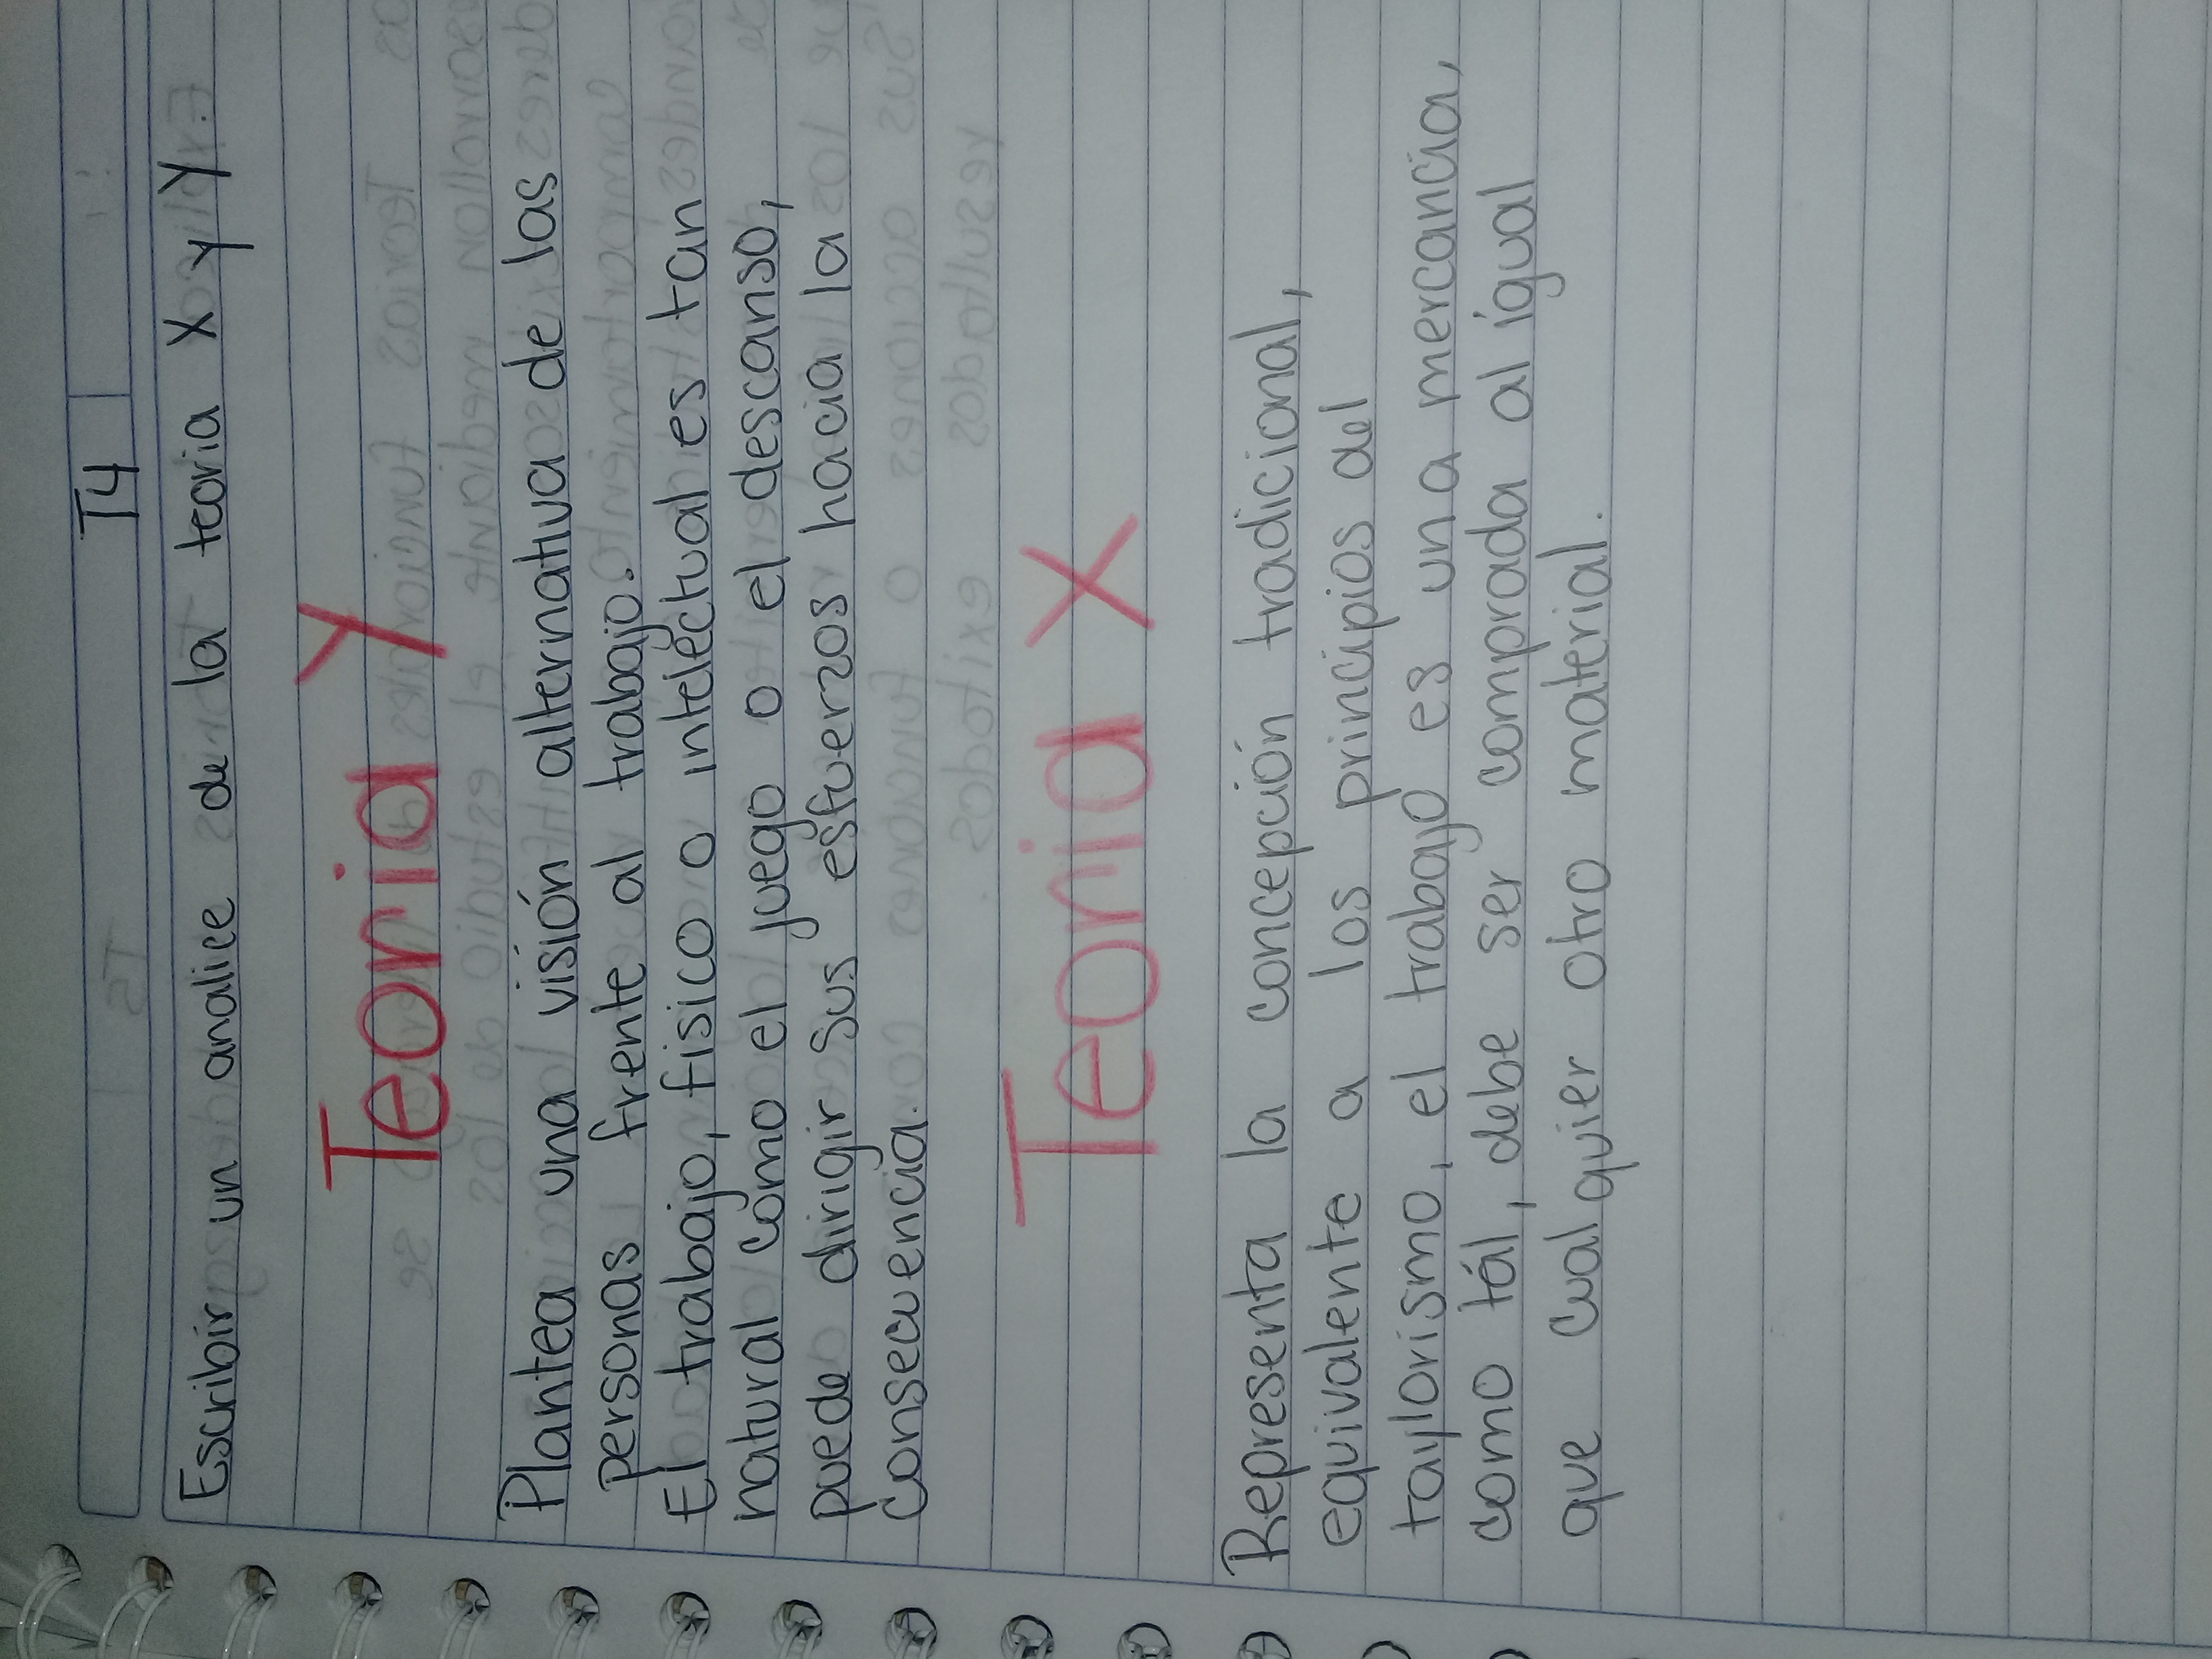 T4
Escribir un analice de la teoria X y Y
Teoria Y
Plantea una visión alternativa de las
personas frente al trabajo.
El trabajo, fisico o intelectual es tan
natural como el juego o el descanso,
puede dirigir sus esfuerzos hacia la
consecuencia.
Teoria X
Representa la concepción tradicional,
equivalente a los principios del
taylorismo, el trabajo es una mercancia,
como tál, debe ser comprada al igual
que cualquier otro material.